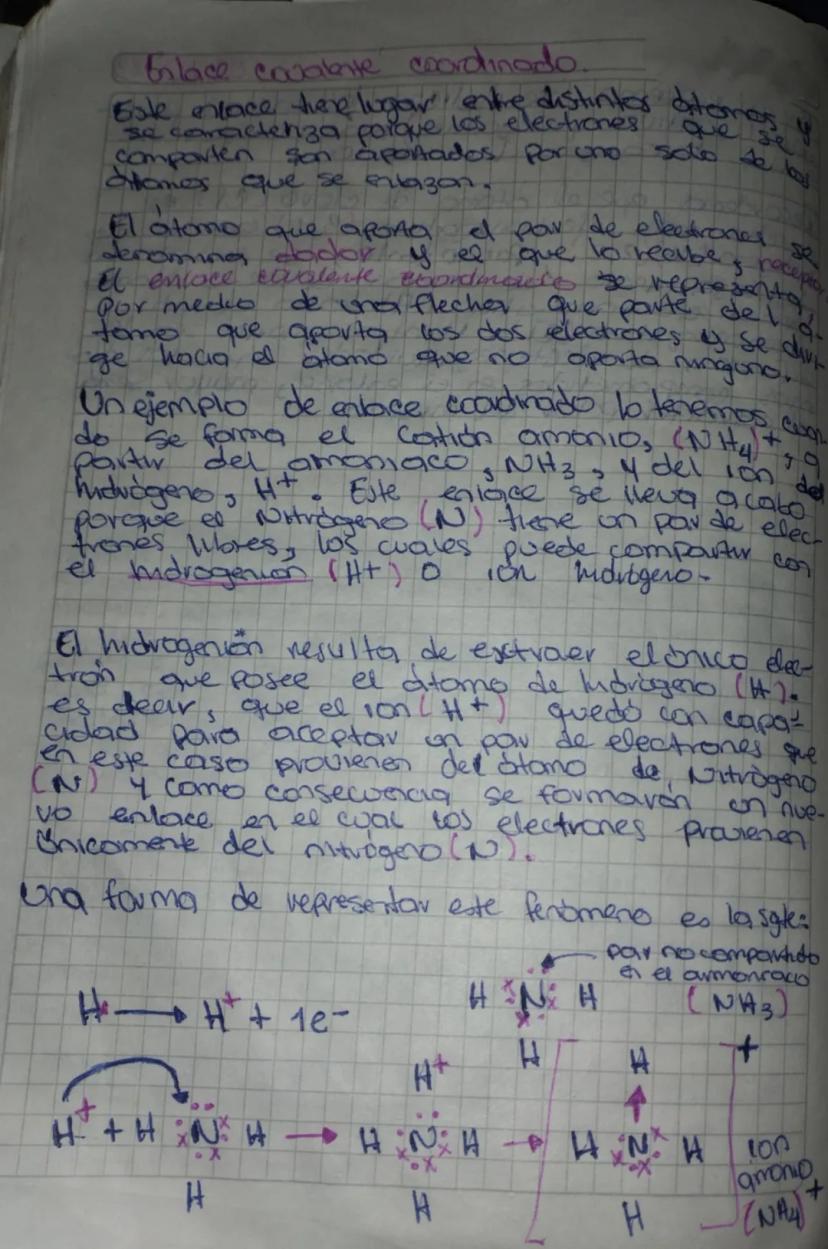 Enlace covalente coordinado.
Este enlace tiene lugar entre distintos átomos y
se caracteriza porque los electrones que se
comparten son aportados por uno solo de los
átomos que se enlazan.
El átomo que aporta el par de electrones se
denomina dador y el que lo recibe, receptor
El enlace covalente coordinado se representa,
por medio de una flecha que parte del á-
tomo que aporta los dos electrones y se diri-
ge hacia el átomo que no aporta ninguno.
Un ejemplo de enlace coordinado lo tenemos cuan
do se forma el catión amonio, (NH4)+, a
partir del amoniaco, NH3, y del ion del
hidrógeno, H+. Este enlace se lleva acabo
porque el Nitrógeno (N) tiene un par de elec-
trones libres, los cuales puede compartir con
el hidrogenión (H+) o ión hidrógeno.
El hidrogenión resulta de extraer el único elec-
trón que posee el átomo de hidrógeno (H).
es decir, que el ion (H+) quedó con capa-
cidad para aceptar un par de electrones que
en este caso provienen del átomo de Nitrógeno
(N) y como consecuencia se formarán un nue-
vo enlace en el cual los electrones provienen
únicamente del nitrógeno (N).
Una forma de representar este fenómeno es la sgte:
par no compartido
en el armonraco
H → H+ + 1e-
H N H (NH3)
H
H+ H +
H+ + H N H → H N H → H N H ion
amonio
H H H (NH4)+